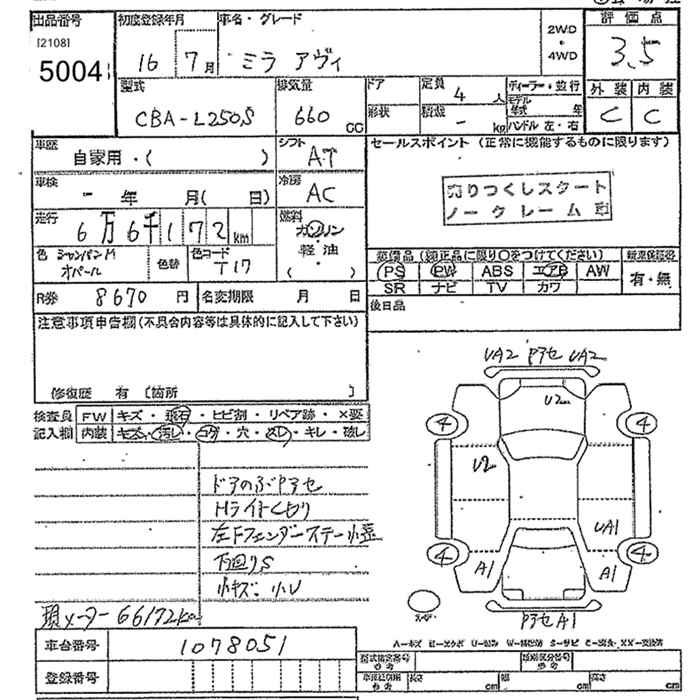 出品番号
[2108]
5004
初度登録年月
16 7月
車名・グレード
ミラ アヴィ
2WD
・
4WD
評価点
3.5
外装 内装
C C
型式
CBA-L250S
排気量
660
CC
ドア
形状
定員
4 人
積載
- kg
ディーラー・並行
モデル年式 年
ハンドル 左・右
車歴
自家用・( )
シフト
AT
車検
- 年 月( 日)
冷房
AC
走行
6万6千172km
燃料
ガソリン
・
軽油
( ・ )
色
シャンパンM
オパール
色替
色コード
T17
R券
8670円
名変期限 月 日
セールスポイント (正常に機能するものに限ります)
売りつくしスタート
ノークレーム
装備品(純正品に限り○をつけてください)
新車保証書
PS PW ABS エアB AW
SR ナビ TV カワ
有・無
後日品
注意事項申告欄(不具合内容等は具体的に記入して下さい)
修復歴 有 [箇所 ]
検査員
記入欄
FW キズ・飛石・ヒビ割・リペア跡・×要
内装 キズ・汚レ・コゲ・穴・スレ・キレ・破レ
ドアのぶPアセ
Hライトくもり
左Fフェンダーステー小歪
下回りS
小キズ・小U
現メーター66172km
車台番号
1078051
登録番号
UA2 Pアセ UA2
U2
4 4
U2
UA1
4 4
A1 A1
Pアセ A1
型式指定番号
類別区分番号
長さ cm 幅 cm 高さ cm